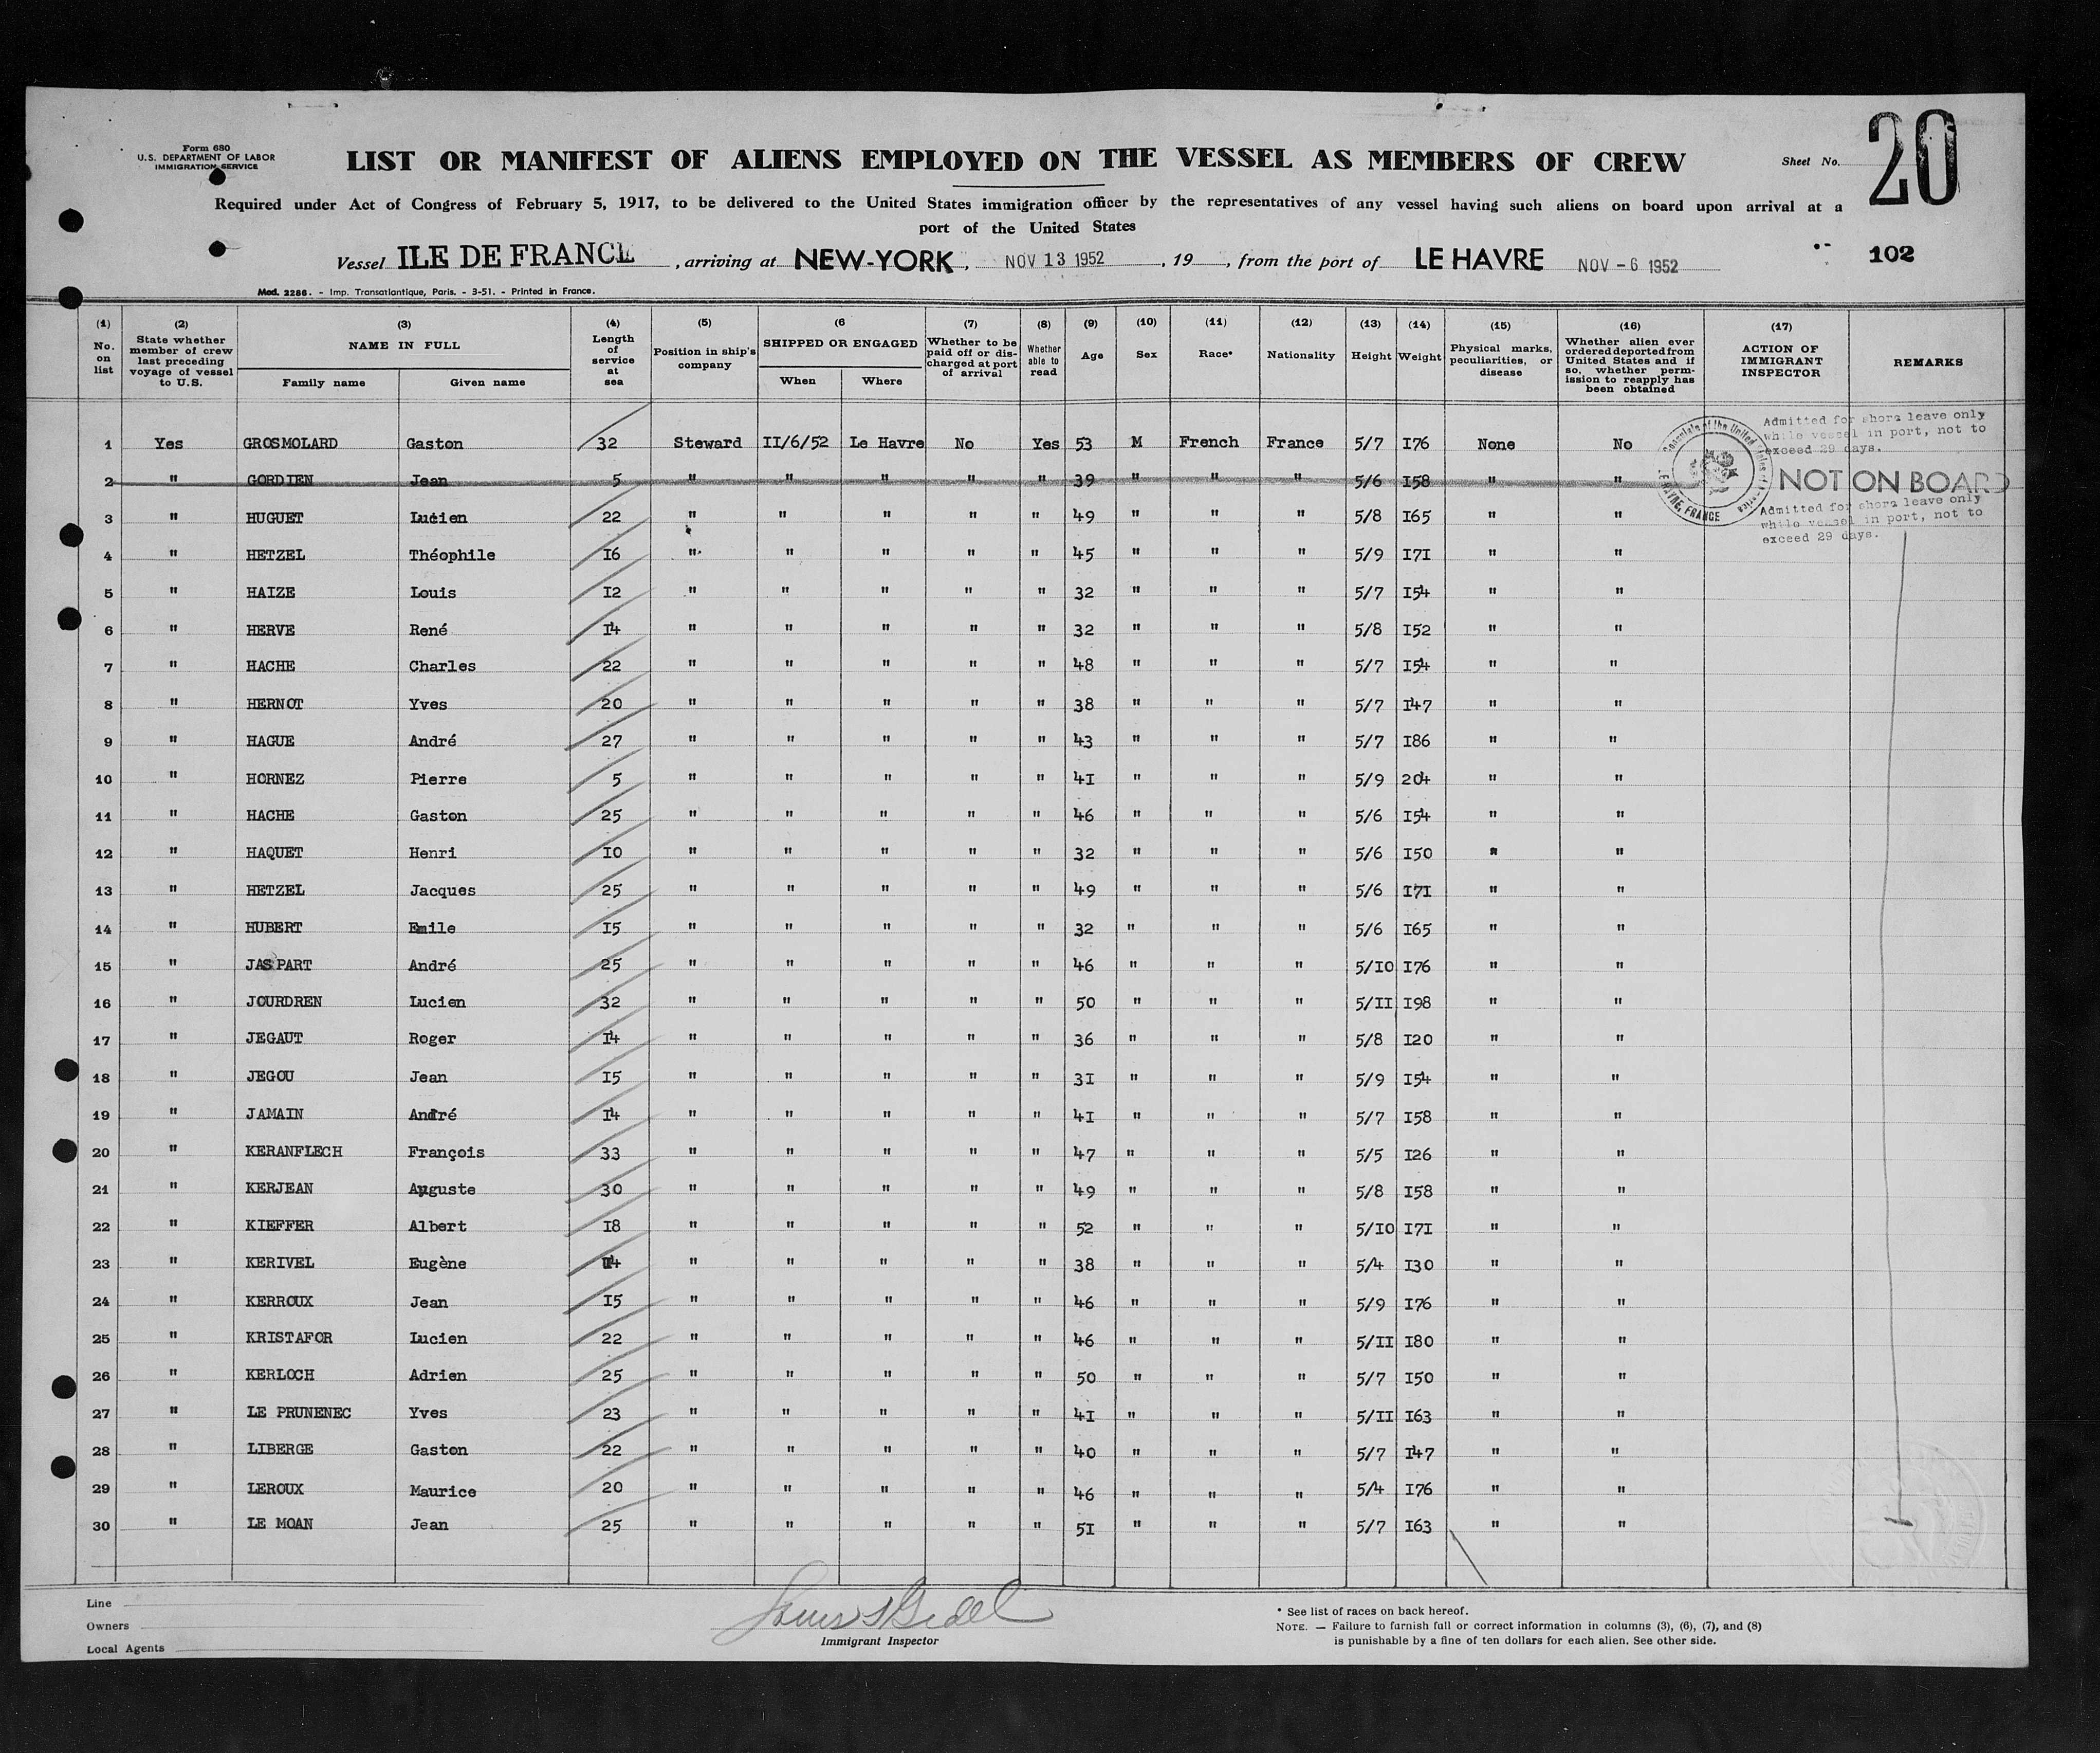 Form 680
U.S. DEPARTMENT OF LABOR
IMMIGRATION SERVICE
LIST OR MANIFEST OF ALIENS EMPLOYED ON THE VESSEL AS MEMBERS OF CREW
Sheet No. 20
Required under Act of Congress of February 5, 1917, to be delivered to the United States immigration officer by the representatives of any vessel having such aliens on board upon arrival at a
port of the United States
Vessel ILE DE FRANCE, arriving at NEW-YORK, NOV 13 1952, 19 , from the port of LE HAVRE NOV - 6 1952
102
Mod. 2286. - Imp. Transatlantique, Paris. - 3-51. - Printed in France.
(1) No. on list
(2) State whether member of crew last preceding voyage of vessel to U.S.
(3) NAME IN FULL Family name Given name
(4) Length of service at sea
(5) Position in ship's company
(6 SHIPPED OR ENGAGED When Where
(7) Whether to be paid off or discharged at port of arrival
(8) Whether able to read
(9) Age
(10) Sex
(11) Race*
(12) Nationality
(13) Height
(14) Weight
(15) Physical marks, peculiarities, or disease
(16) Whether alien ever ordered deported from United States and if so, whether permission to reapply has been obtained
(17) ACTION OF IMMIGRANT INSPECTOR
REMARKS
Admitted for shore leave only
while vessel in port, not to
exceed 29 days.
1 Yes GROSMOLARD Gaston 32 Steward II/6/52 Le Havre No Yes 53 M French France 5/7 I76 None No
Consulate of the United States of America
LE HAVRE, FRANCE
2 " GORDIEN Jean 5 " " " " " 39 " " " 5/6 I58 " " NOT ON BOARD
Admitted for shore leave only
while vessel in port, not to
exceed 29 days.
3 " HUGUET Lucien 22 " " " " " 49 " " " 5/8 I65 " "
4 " HETZEL Théophile I6 " " " " " 45 " " " 5/9 I7I " "
5 " HAIZE Louis I2 " " " " " 32 " " " 5/7 I54 " "
6 " HERVE René I4 " " " " " 32 " " " 5/8 I52 " "
7 " HACHE Charles 22 " " " " " 48 " " " 5/7 I54 " "
8 " HERNOT Yves 20 " " " " " 38 " " " 5/7 I47 " "
9 " HAGUE André 27 " " " " " 43 " " " 5/7 I86 " "
10 " HORNEZ Pierre 5 " " " " " 4I " " " 5/9 204 " "
11 " HACHE Gaston 25 " " " " " 46 " " " 5/6 I54 " "
12 " HAQUET Henri I0 " " " " " 32 " " " 5/6 I50 " "
13 " HETZEL Jacques 25 " " " " " 49 " " " 5/6 I7I " "
14 " HUBERT Emile I5 " " " " " 32 " " " 5/6 I65 " "
15 " JASPART André 25 " " " " " 46 " " " 5/I0 I76 " "
16 " JOURDREN Lucien 32 " " " " " 50 " " " 5/II I98 " "
17 " JEGAUT Roger I4 " " " " " 36 " " " 5/8 I20 " "
18 " JEGOU Jean I5 " " " " " 3I " " " 5/9 I54 " "
19 " JAMAIN André I4 " " " " " 4I " " " 5/7 I58 " "
20 " KERANFLECH François 33 " " " " " 47 " " " 5/5 I26 " "
21 " KERJEAN Auguste 30 " " " " " 49 " " " 5/8 I58 " "
22 " KIEFFER Albert I8 " " " " " 52 " " " 5/I0 I7I " "
23 " KERIVEL Eugène I4 " " " " " 38 " " " 5/4 I30 " "
24 " KERROUX Jean I5 " " " " " 46 " " " 5/9 I76 " "
25 " KRISTAFOR Lucien 22 " " " " " 46 " " " 5/II I80 " "
26 " KERLOCH Adrien 25 " " " " " 50 " " " 5/7 I50 " "
27 " LE PRUNENEC Yves 23 " " " " " 4I " " " 5/II I63 " "
28 " LIBERGE Gaston 22 " " " " " 40 " " " 5/7 I47 " "
29 " LEROUX Maurice 20 " " " " " 46 " " " 5/4 I76 " "
30 " LE MOAN Jean 25 " " " " " 5I " " " 5/7 I63 " "
Line
Owners
Local Agents
Immigrant Inspector
* See list of races on back hereof.
NOTE. — Failure to furnish full or correct information in columns (3), (6), (7), and (8)
is punishable by a fine of ten dollars for each alien. See other side.